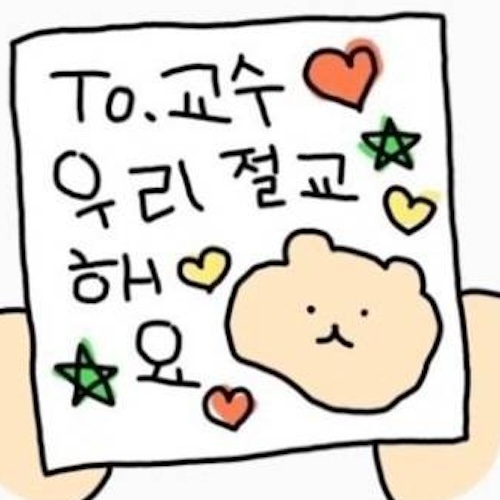 To.교수
우리 절교
해
요